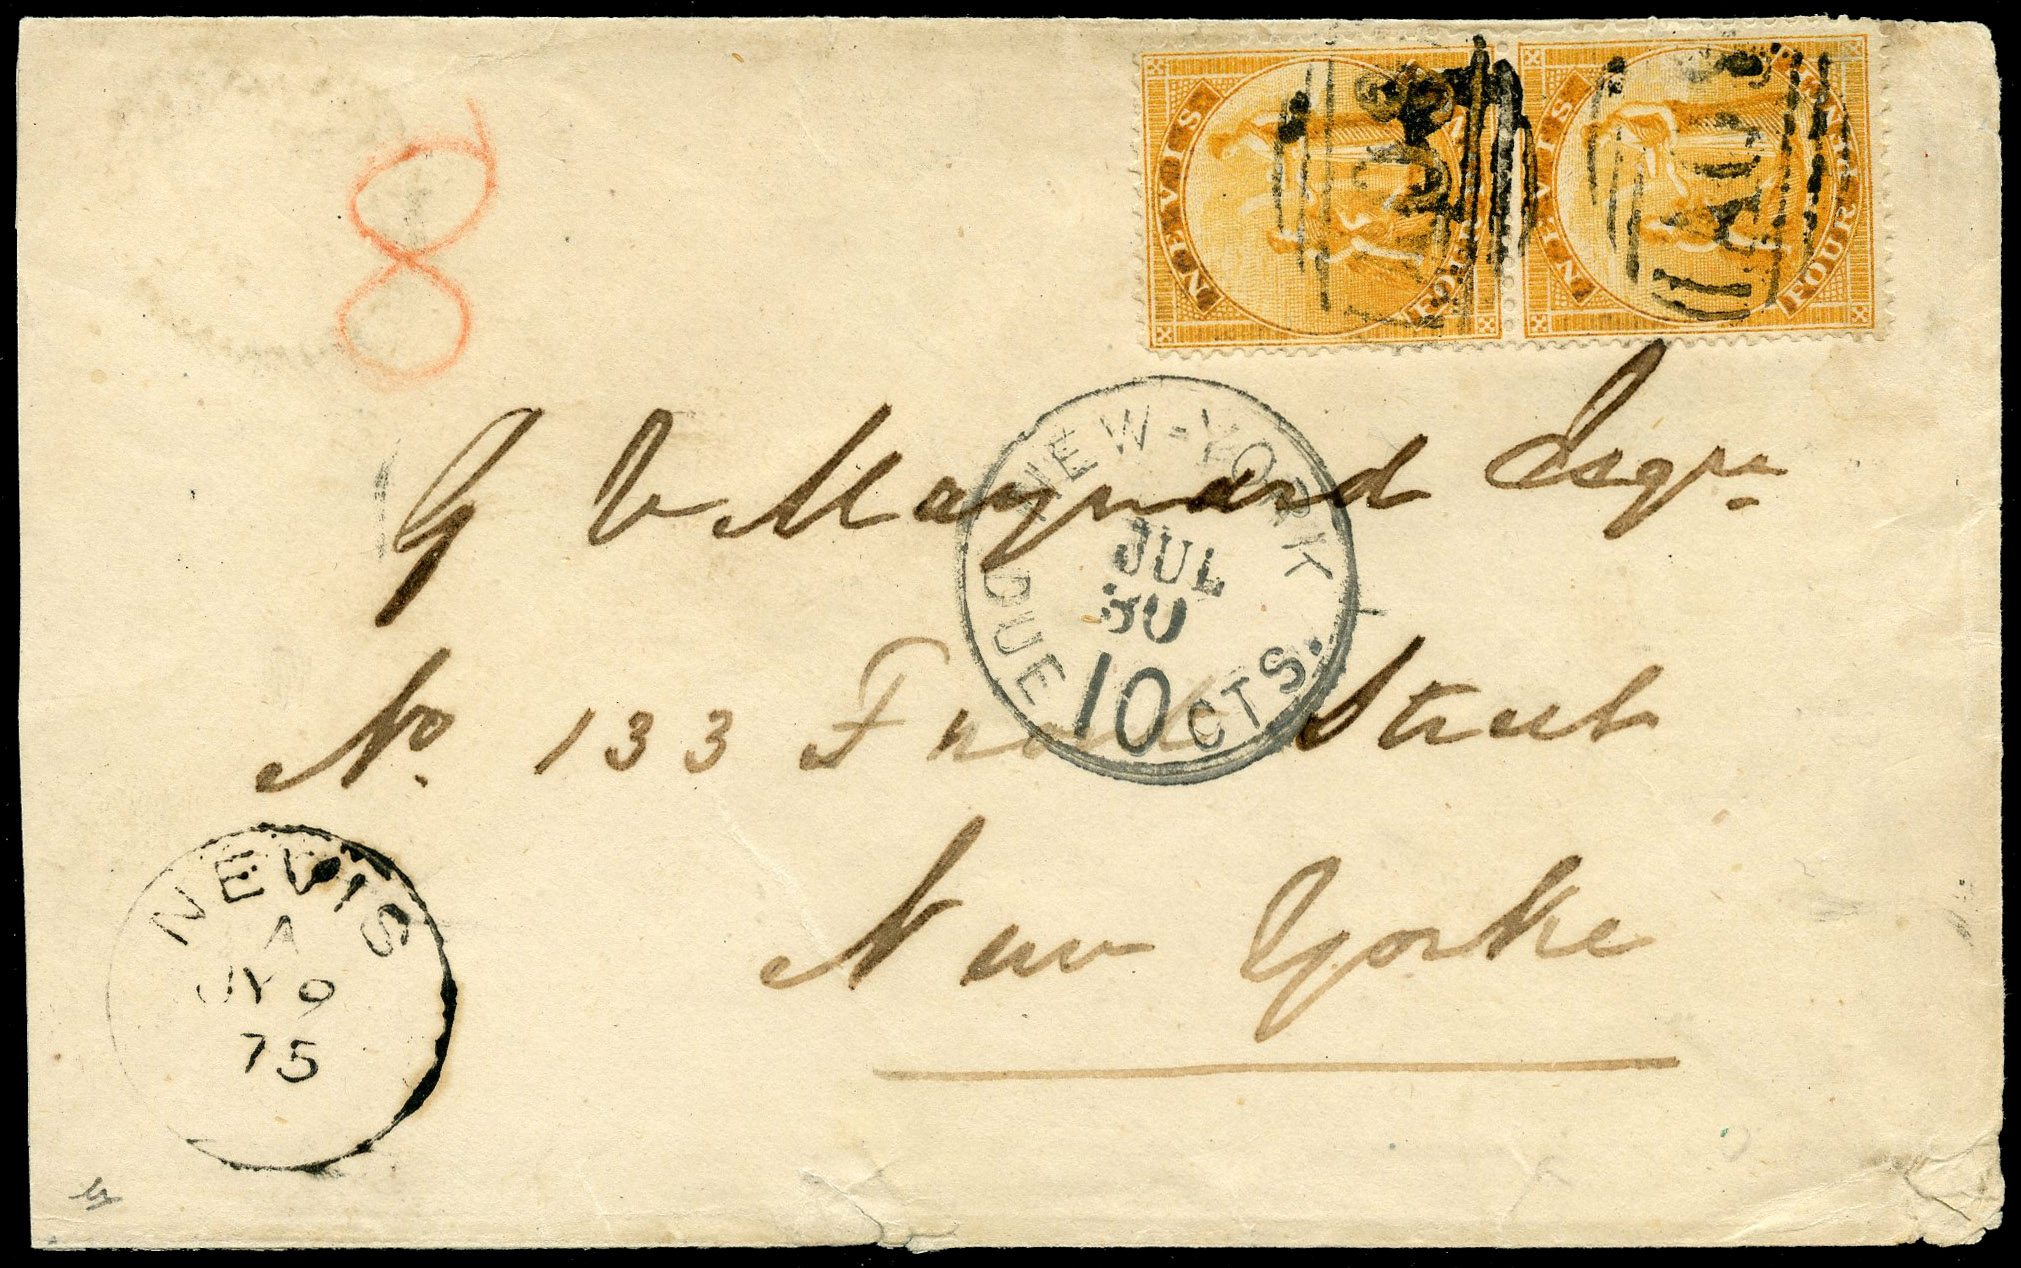 8
NEVIS
FOUR PENCE
NEVIS
FOUR PENCE
A09
A09
G V Maynard Esqre
NEW-YORK
JUL
30
DUE 10 CTS.
No. 133 Front Street
New Yorke
NEVIS
A
JY 9
75